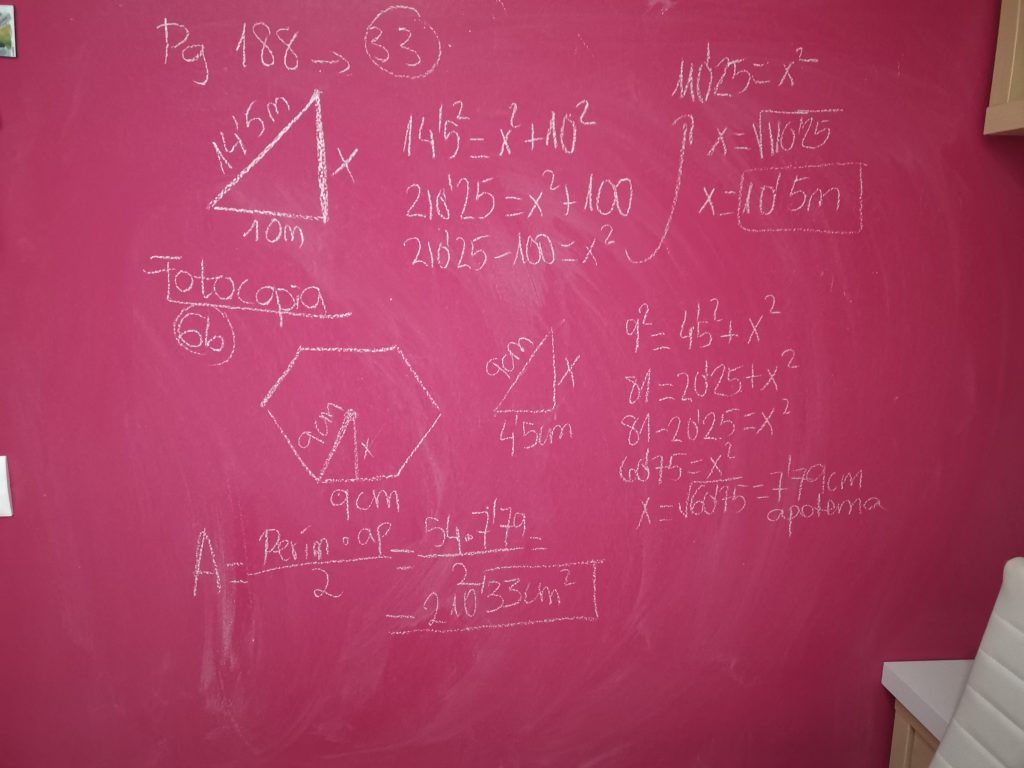 Pg 188 → 33
14'5m
x
10m
14'5² = x² + 10²
210'25 = x² + 100
210'25 - 100 = x²
110'25 = x²
x = √110'25
x = 10'5m
Fotocopia
6b
9cm
x
9cm
9cm
x
4'5cm
9² = 4'5² + x²
81 = 20'25 + x²
81 - 20'25 = x²
60'75 = x²
x = √60'75 = 7'79cm
apotema
A = Perím · ap / 2 = 54 · 7'79 / 2 =
= 210'33cm²